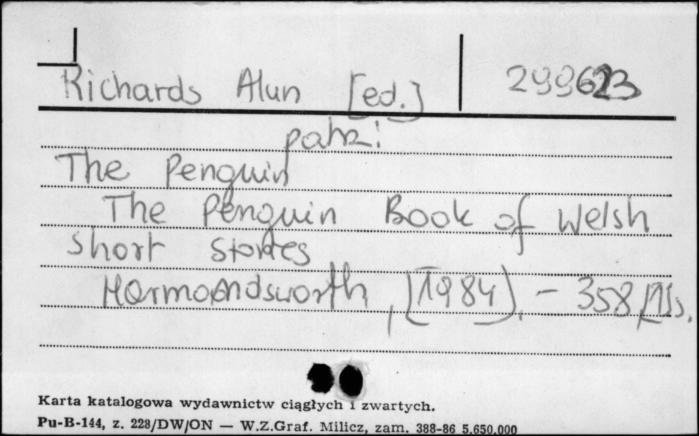 Richards Alun [ed.] 299623
patrz:
The Penguin
The Penguin Book of Welsh
short stories
Harmondsworth, [1984]. - 358,
Karta katalogowa wydawnictw ciągłych i zwartych.
Pu-B-144, z. 228/DW/ON — W.Z.Graf. Milicz, zam. 388-86 5.650.000